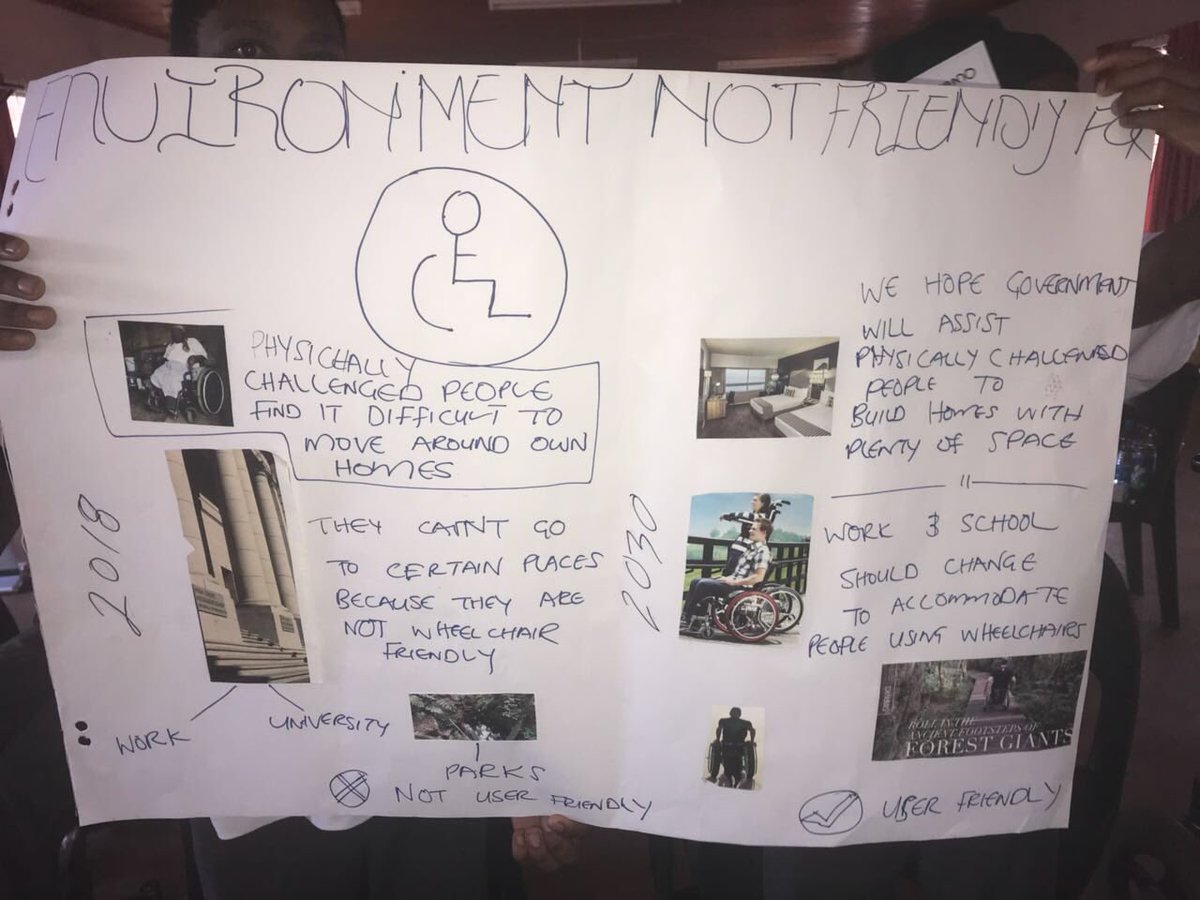 ENVIRONMENT NOT FRIENDLY FOR
PHYSICHALLY
CHALLENGED PEOPLE
FIND IT DIFFICULT TO
MOVE AROUND OWN
HOMES
2018
THEY CANT GO
TO CERTAIN PLACES
BECAUSE THEY ARE
NOT WHEELCHAIR
FRIENDLY
WORK
UNIVERSITY
PARKS
NOT USER FRIENDLY
WE HOPE GOVERNMENT
WILL ASSIST
PHYSICALLY CHALLENGED
PEOPLE TO
BUILD HOMES WITH
PLENTY OF SPACE
2030
WORK & SCHOOL
SHOULD CHANGE
TO ACCOMMODATE
PEOPLE USING WHEELCHAIRS
ROLL IN THE
ANCIENT FOOTSTEPS OF
FOREST GIANTS
USER FRIENDLY